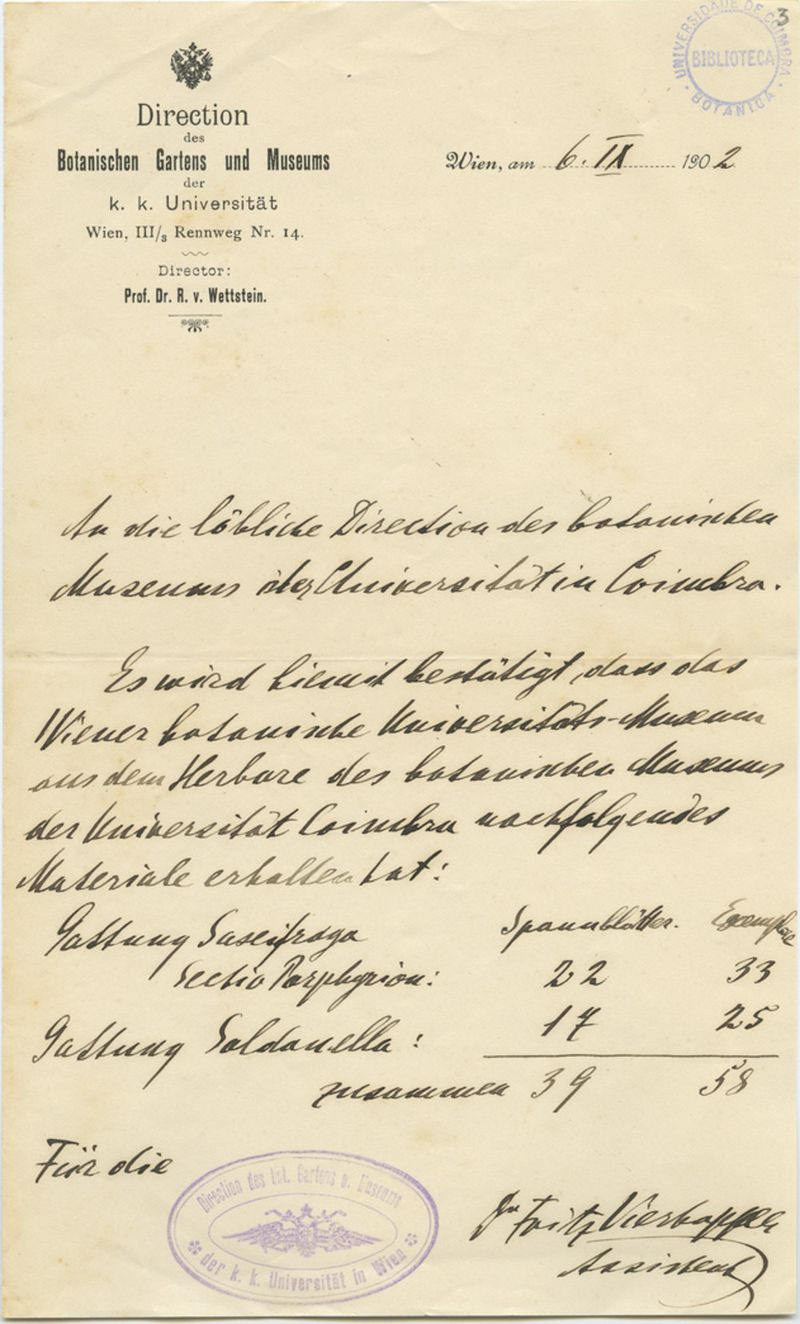 3
UNIVERSIDADE DE COIMBRA
BIBLIOTECA
BOTANICA
Direction
des
Botanischen Gartens und Museums
der
k. k. Universität
Wien, III/3 Rennweg Nr. 14.
Director:
Prof. Dr. R. v. Wettstein.
Wien, am 6. IX 1902
An die löbliche Direction des botanischen
Museums der Universität in Coimbra.
Es wird hiemit bestätigt, dass das
Wiener botanische Universitäts-Museum
aus dem Herbare des botanischen Museums
der Universität Coimbra nachfolgendes
Materiale erhalten hat:
Spannblätter. Exemplare
Gattung Saxifraga
Sectio Porphyrion: 22 33
Gattung Soldanella: 17 25
zusammen 39 58
Für die
Direction des bot. Gartens u. Museums
der k. k. Universität in Wien
Dr Fritz Vierhapper
Assistent